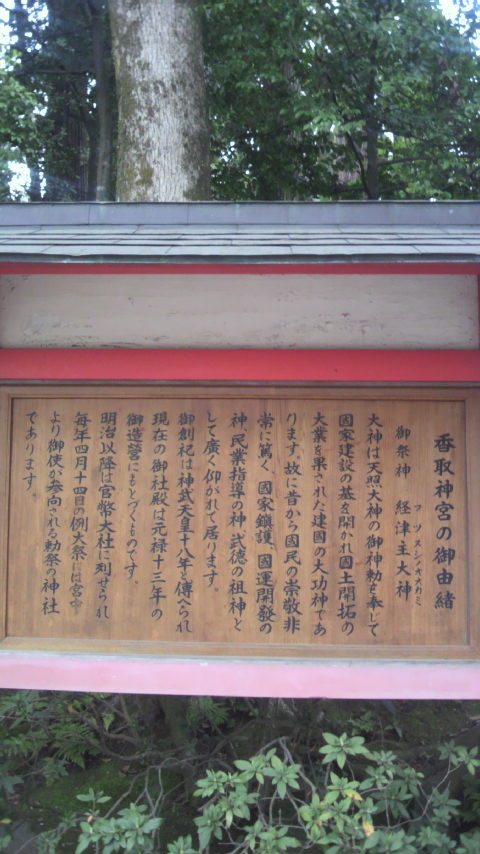 香取神宮の御由緒
御祭神 経津主大神
フツヌシノオオカミ
大神は天照大神の御神勅を奉じて
国家建設の基を開かれ國土開拓の
大業を果された建國の大功神であ
ります。故に昔から國民の崇敬非
常に篤く、國家鎮護、國運開發の
神、民業指導の神、武徳の祖神と
して廣く仰がれて居ります。
御創祀は神武天皇十八年と傳へられ
現在の御社殿は元禄十三年の
御造営にもとづくものです。
明治以降は官幣大社に列せられ
毎年四月十四日の例大祭には宮中
より御使が参向される勅祭の神社
であります。